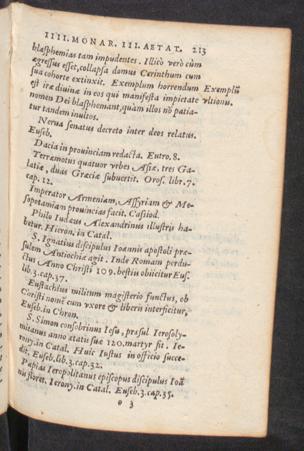 IIII. MONAR. III. AETAT. 213
blasphemias tam impudentes. Illicò verò cùm
egressus esset, collapsa domus Cerinthum cum
sua cohorte extinxit. Exemplum horrendum Exemplũ
est iræ diuinæ in eos qui manifesta impietate vltionis.
nomen Dei blasphemant, quàm illos nõ patia-
tur tandem inultos.
Nerua senatus decreto inter deos relatus.
Euseb.
Dacia in prouinciam redacta. Eutro. 8.
Terræmotus quatuor vrbes Asiæ, tres Ga-
latiæ, duas Græciæ subuertit. Oros. lib. 7.
cap. 12.
Imperator Armeniam, Assyriam & Me-
sopotamiam prouincias facit. Cassiod.
Philo Iudæus Alexandrinus illustris ha-
betur. Hieron. in Catal.
S. Ignatius discipulus Ioannis apostoli præ-
sulem Antiochiæ agit. Inde Romam perdu-
ctus Anno Christi 109. bestiis obiicitur Eus.
lib. 3. cap. 37.
Eustachius militum magisterio functus, ob
Christi nomẽ cum vxore & liberis interficitur,
Euseb. in Chron.
S. Simon consobrinus Iesu, præsul Ierosoly-
mitanus anno ætatis suæ 120. martyr fit. Ie-
rony. in Catal. Huic Iustus in officio succe-
dit, Euseb. lib. 3. cap. 32.
Papias Ieropolitanus episcopus discipulus Ioã
nis floret. Ierony. in Catal. Euseb. 3. cap. 35.
o 3